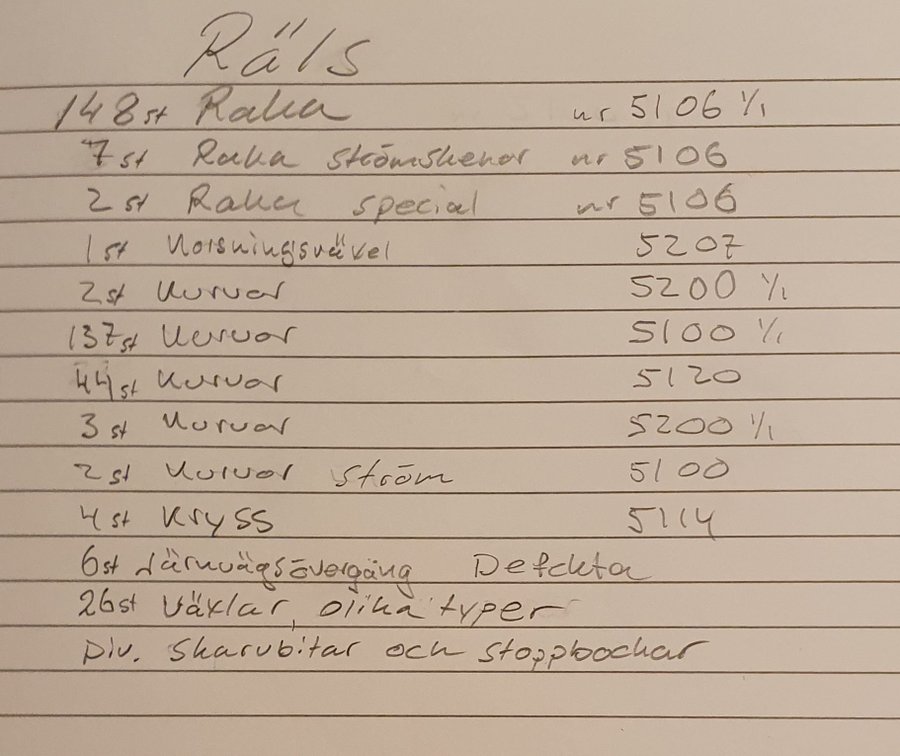 Räls
148 st Raka nr 5106 1/1
7 st Raka strömskenor nr 5106
2 st Raka special nr 5106
1 st Korsningsväxel 5207
2 st Kurvor 5200 1/1
137 st Kurvor 5100 1/1
44 st Kurvor 5120
3 st Kurvor 5200 1/1
2 st Kurvor ström 5100
4 st Kryss 5114
6 st Järnvägsövergång Defekta
26 st växlar, olika typer
Div. Skarvbitar och stoppbockar